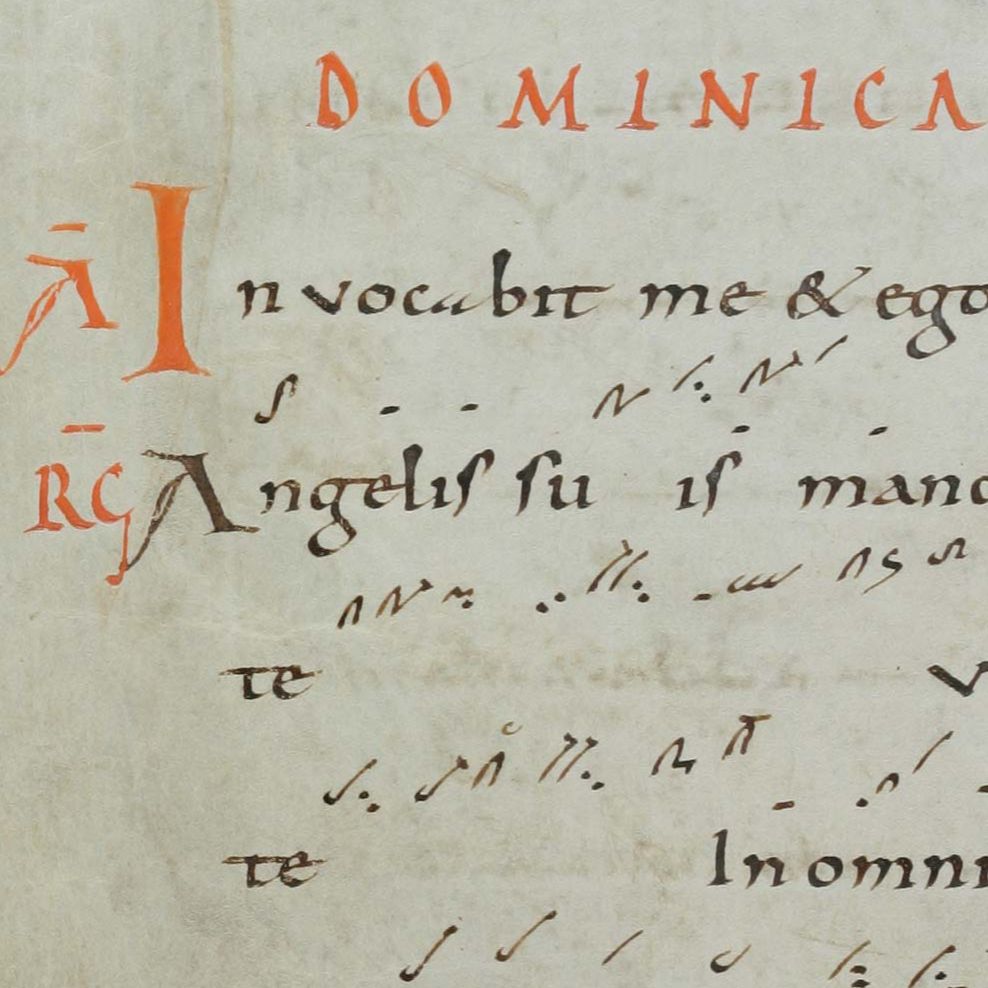 DOMINICA
A̅ Invocabit me & ego
R̅G Angelis su is mand
te v
te In omni